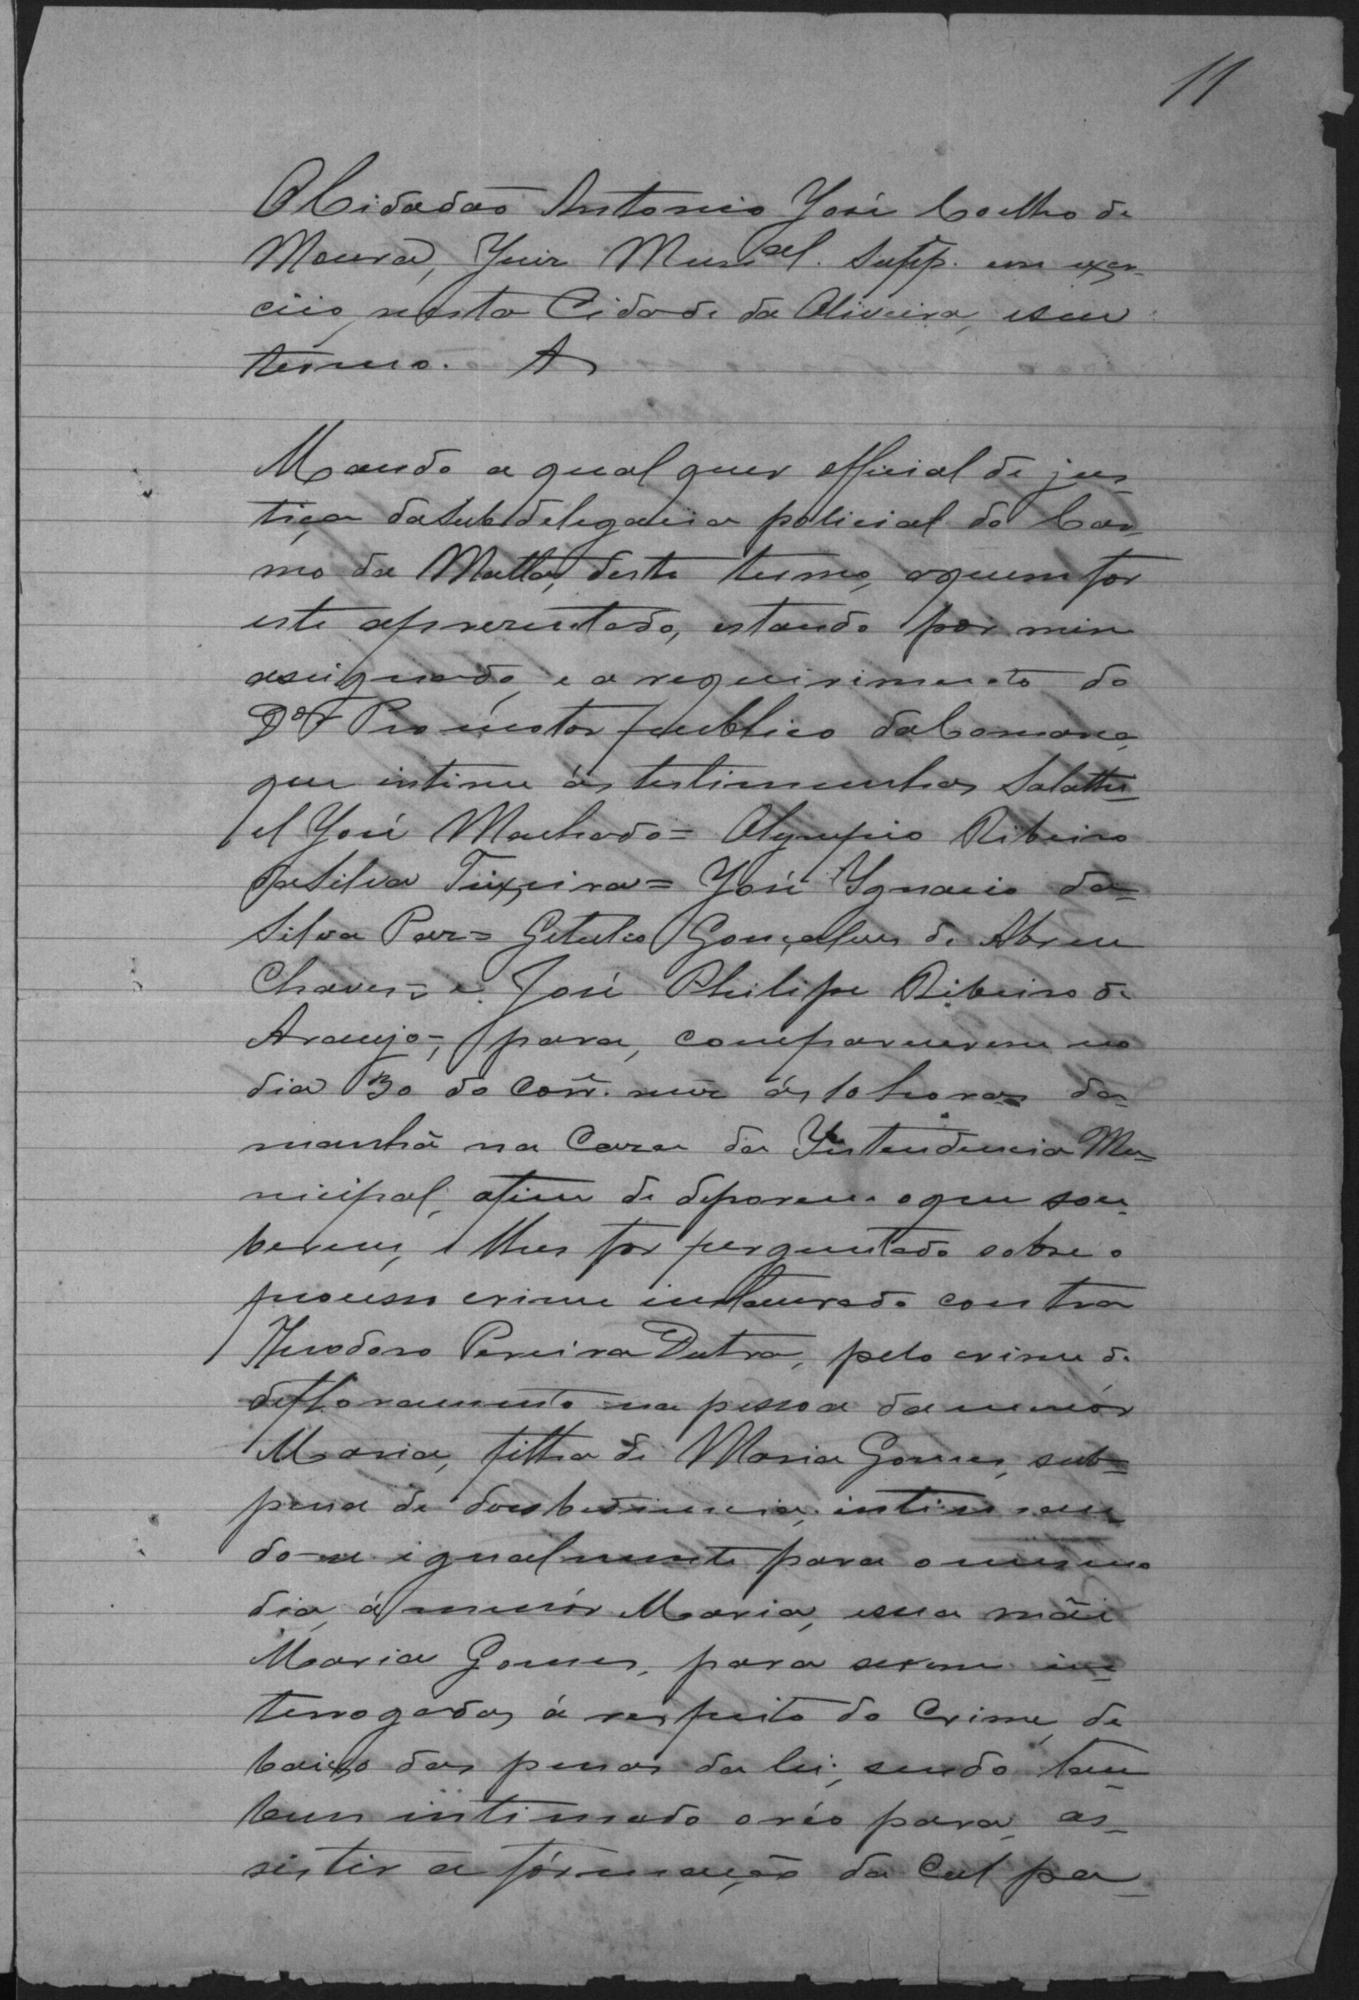 11
O Cidadão Antonio José Coelho de
Moura, Juiz Munal. Supp. em exer-
cicio, nesta Cidade da Oliveira, e seu
termo.
Mando a qualquer official de jus-
tiça da Subdelegacia policial do Car-
mo da Matta, deste termo, a quem for
este apresentado, estando por mim
assignado, e a requirimento do
Dor Promotor publico da Comarca,
que intime ás testimunhas Salathi-
el José Machado = Olympio Ribeiro
da Silva Teixeira = José Ignacio da-
Silva Paz = Getulio Gonçalves de Abreu
Chaves = e José Philipe Ribeiro de
Araujo =, para, comparecerem no
dia 30 do corr. mez ás 10 horas da
manhã na Caza da Intendencia Mu-
nicipal, afim de deporem o que sou-
berem, e lhes for perguntado sobre o
processo crime instaurado contra
Theodoro Pereira Dutra, pelo crime de
defloramento na pessoa da menór
Maria, filha de Maria Gomes, sub-
pena de desobediencia, intiman-
do-se igualmente para o mesmo
dia, á menór Maria, e sua mãi
Maria Gomes, para serem in-
terrogadas á respeito do Crime, de
baixo das penas da lei; sendo tam-
bem intimado o réo para as-
sistir a fórmação da Culpa-